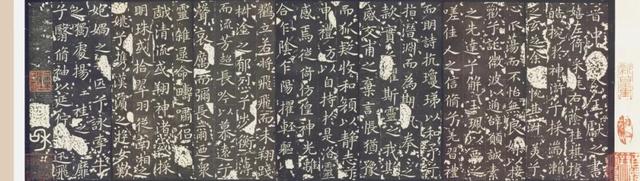 晋中書令王獻之書
嬉左倚采旄右蔭桂旗攘
皓腕於神滸兮採湍瀨
之玄芝余情悅其淑美兮
心振蕩而不怡無良媒以接
歡兮託微波以通辭願誠素
之先達兮解玉珮而要之
嗟佳人之信脩兮羌習禮
而明詩抗瓊珶以和予兮
指潛淵而為期執拳拳之
款實兮懼斯靈之我欺
感交甫之棄言悵猶豫
而狐疑收和顏以靜志兮
申禮防以自持於是洛靈
感焉徙倚仿偟神光離
合乍陰乍陽擢輕軀以
鶴立若將飛而未翔踐
椒塗之郁烈兮步衡薄
而流芳超長吟以慕遠兮
聲哀厲而彌長爾迺衆
靈雜遝命儔嘯侶或
戲清流或翔神渚或採
明珠或拾翠羽從南湘之二
姚兮攜漢濱之遊女歎
炮媧之無匹兮詠牽牛
之獨處揚輕袿之猗靡
兮翳脩袖以延佇體迅飛